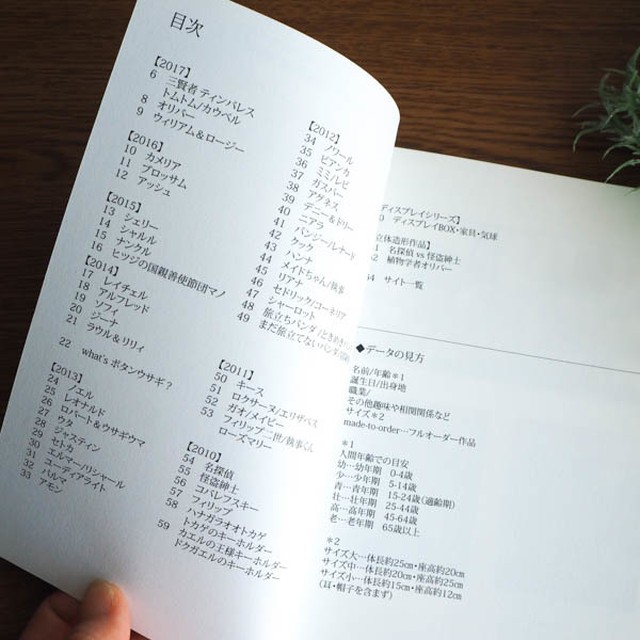 目次
【2017】
6 三賢者 ティンパレス
トムトム/カウベル
8 オリバー
9 ウィリアム&ロージー
【2016】
10 カメリア
11 ブロッサム
12 アッシュ
【2015】
13 シェリー
14 シャルル
15 ナンクル
16 ヒッジの国親善使節団マノ
【2014】
17 レイチェル
18 アルフレッド
19 ソフィ
20 ジーナ
21 ラウル&リリィ
22 what's ボタンウサギ?
【2013】
24 ノエル
25 レオナルド
26 ロバート&ウサギウマ
27 ウタ
28 ジャスティン
29 セシカ
30 エルマー/リシャール
31 ユーディアライト
32 パルマ
33 アモン
【2012】
34 ノワール
35 ビアンカ
36 ミミルピ
37 ガスパー
38 アグネス
39 アニー&ドリー
40 ニブラ
41 バンジー/レナード
42 クック
43 ハンナ
44 メイドちゃん/執事
45 リアナ
46 セドリック/コーネリア
47 シャーロット
48 旅立ちパンダ
49 まだ旅立てないパンダ
【2011】
50 キース
51 ロクサーヌ/エリザベス
52 ガオ/メイビー
53 フィリップ二世/執事くん
ローズマリー
【2010】
54 名探偵
55 怪盗紳士
56 コバレフスキー
57 フィリップ
58 ハナガラオオトカゲ
トカゲのキーホルダー
59 カエルの王様キーホルダー
ドウガエルのキーホルダー
ディスプレイシリーズ】
ディスプレイBOX・家具・気球
立体造形作品】
名探偵 vs 怪盗紳士
植物学者オリバー
サイト一覧
◆データの見方
名前/年齢*1
誕生日/出身地
職業/
その他趣味や相関関係など
サイズ*2
made-to-order…フルオーダー作品
*1
人間年齢での目安
幼…幼年期 0-4歳
少…少年期 5-14歳
青…青年期 15-24歳(適齢期)
壮…壮年期 25-44歳
高…高年期 45-64歳
老…老年期 65歳以上
*2
サイズ大…体長約25cm・座高約20cm
サイズ中…体長約20cm・座高約25cm
サイズ小…体長約15cm・座高約12cm
(耳・帽子を含まず)